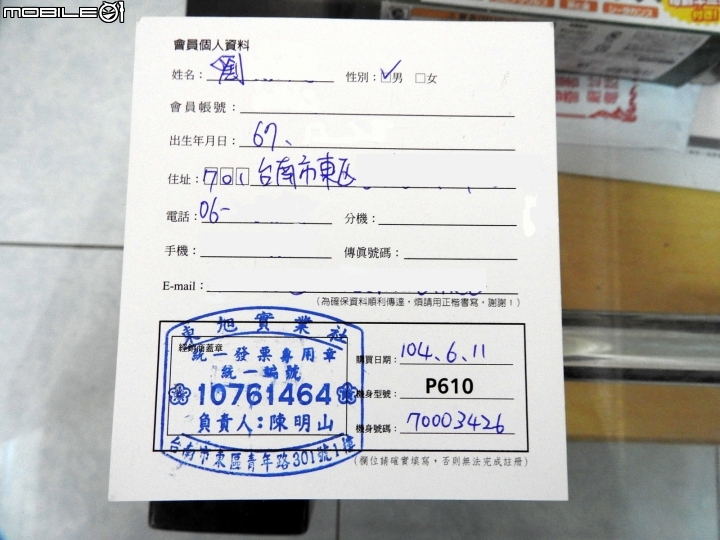 MOBILE01
會員個人資料
姓名：劉
性別：☑男 □女
會員帳號：
出生年月日：67、
住址：701台南市東區
電話：06-
分機：
手機：
傳真號碼：
E-mail：
（為確保資料順利傳達，煩請用正楷書寫，謝謝！）
經銷商蓋章
東旭實業社
統一發票專用章
統一編號
10761464
負責人：陳明山
台南市東區青年路301號1樓
購買日期：104.6.11
機身型號：P610
機身號碼：70003426
（欄位請確實填寫，否則無法完成註冊）